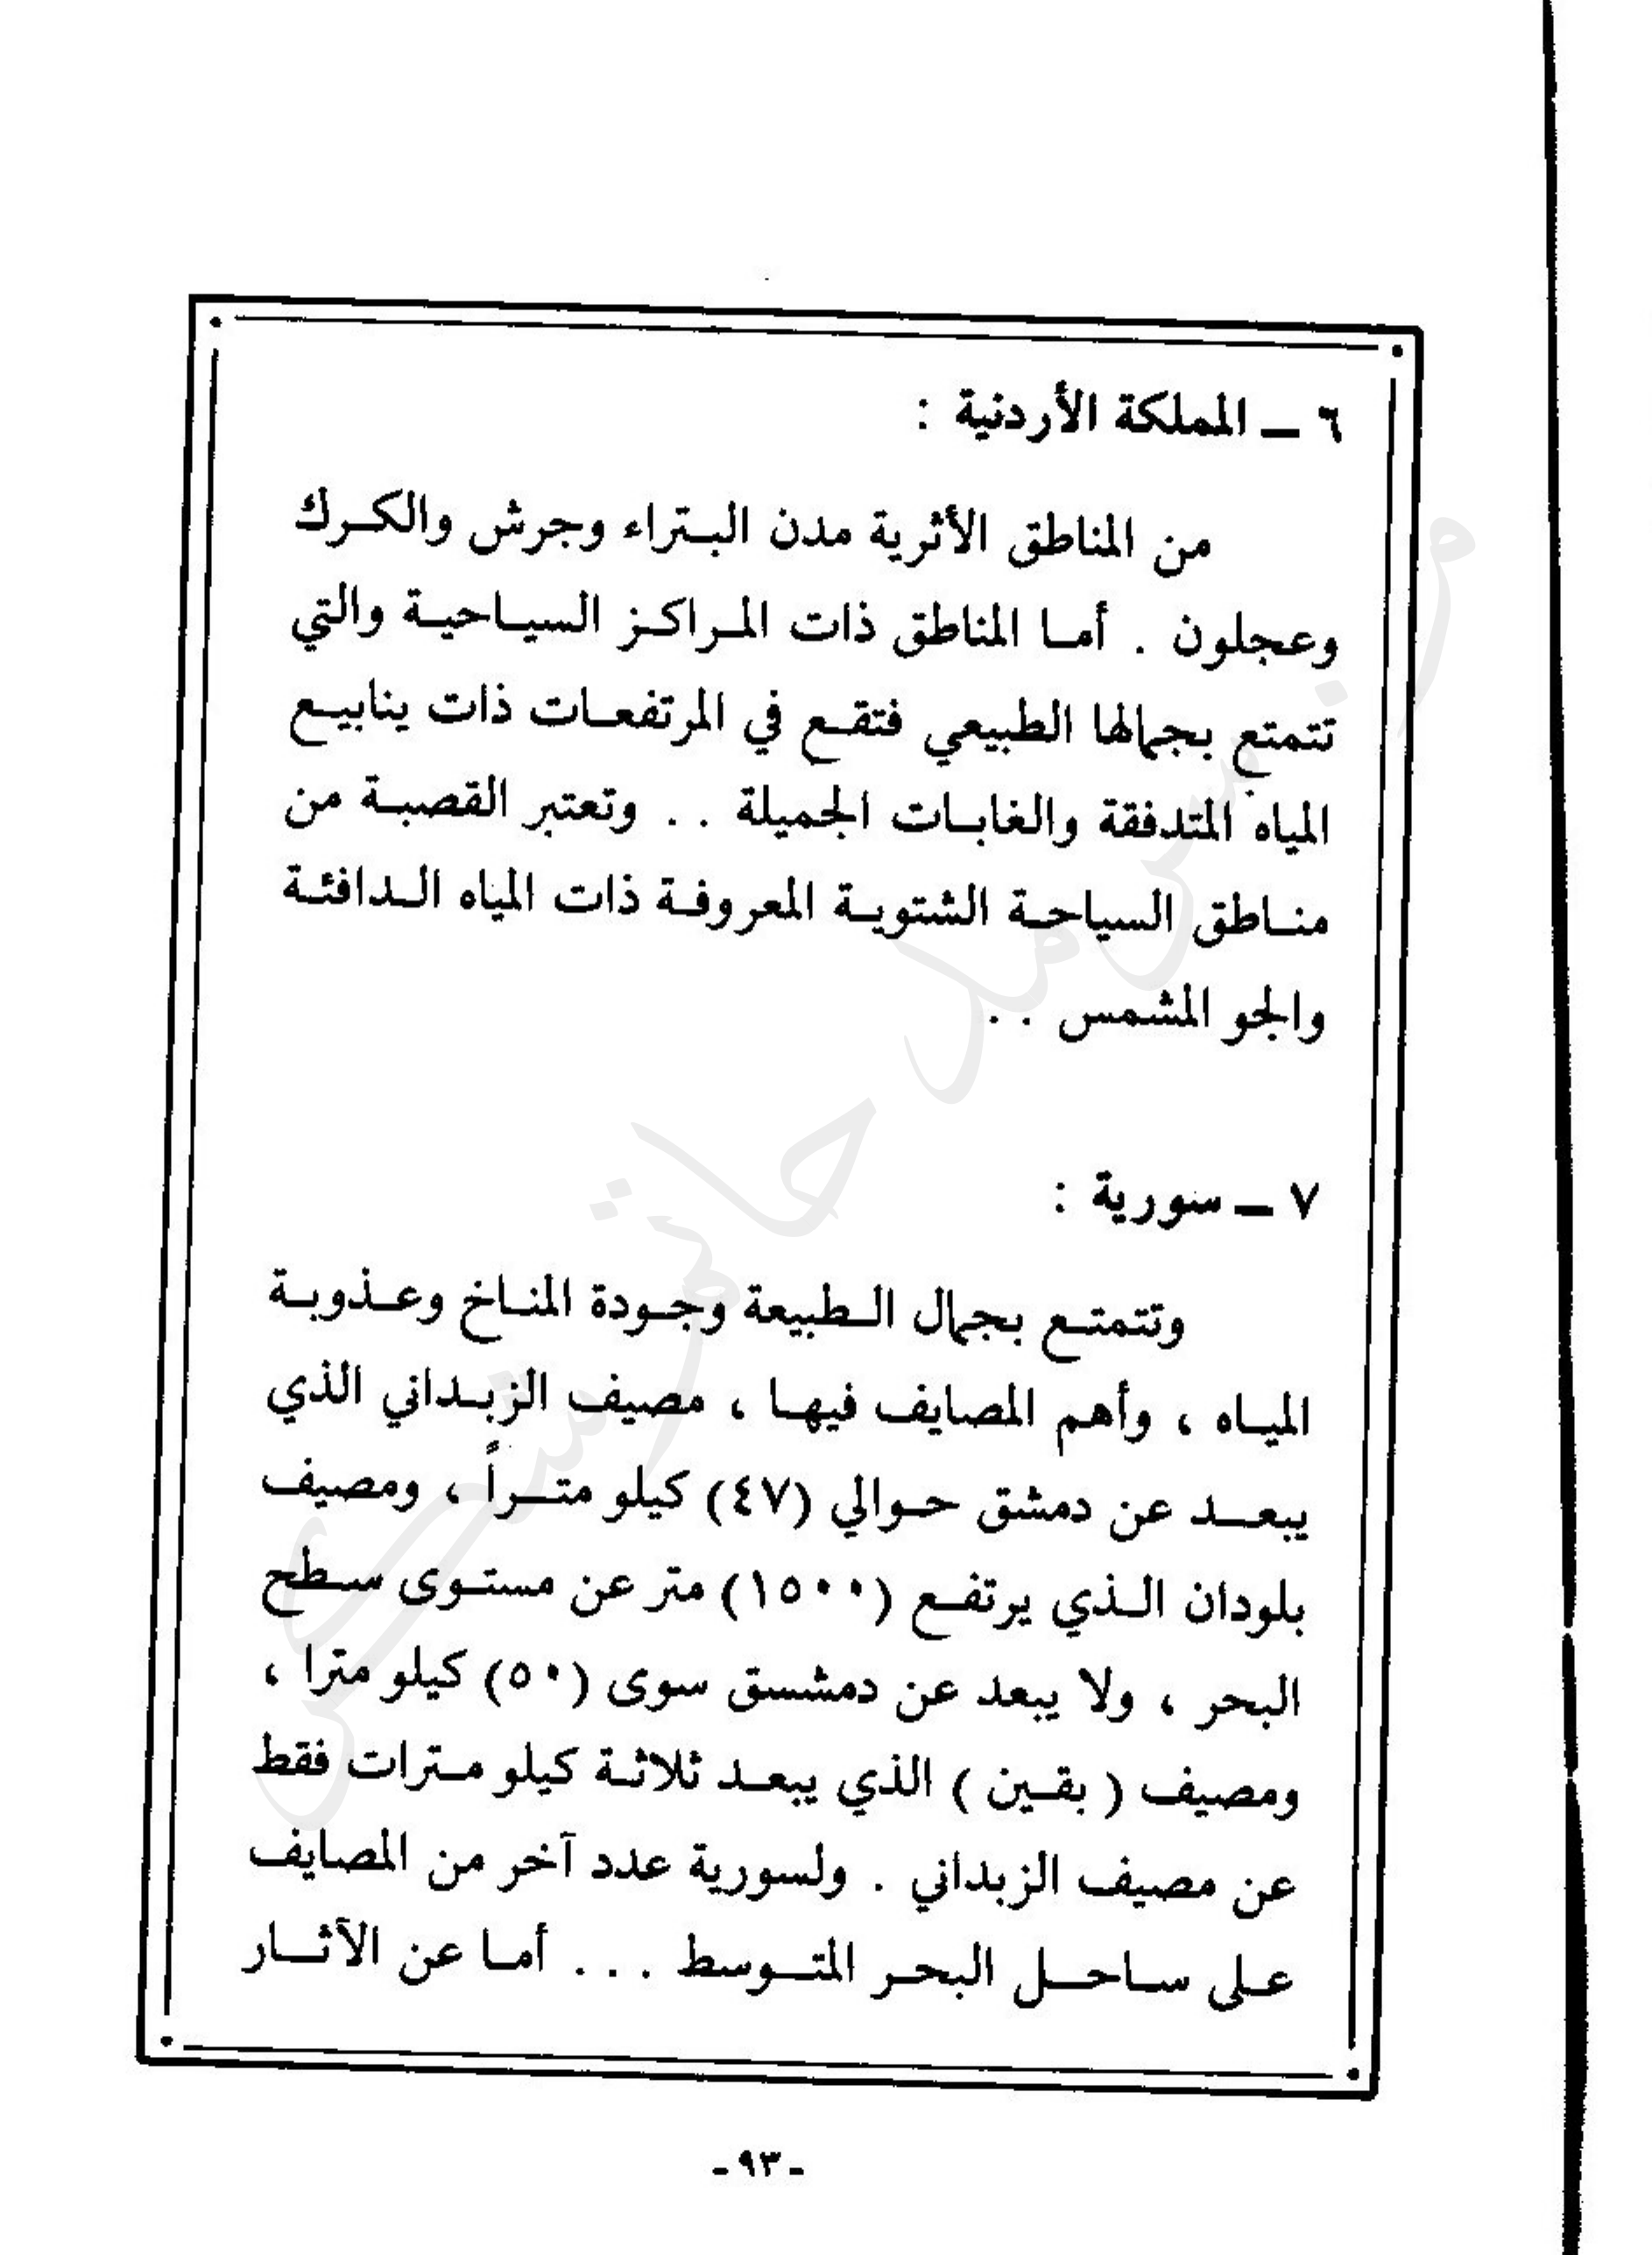 ٦ ــ المملكة الأردنية :
من المناطق الأثرية مدن البتراء وجرش والكرك
وعجلون . أما المناطق ذات المراكز السياحية والتي
تتمتع بجمالها الطبيعي فتقع في المرتفعات ذات ينابيع
المياه المتدفقة والغابات الجميلة . . وتعتبر القصبة من
مناطق السياحة الشتوية المعروفة ذات المياه الدافئة
والجو المشمس . .
٧ ــ سورية :
وتتمتع بجمال الطبيعة وجودة المناخ وعذوبة
المياه ، وأهم المصايف فيها ، مصيف الزبداني الذي
يبعد عن دمشق حوالي (٤٧) كيلو متراً ، ومصيف
بلودان الذي يرتفع (١٥٠٠) متر عن مستوى سطح
البحر ، ولا يبعد عن دمشق سوى (٥٠) كيلو مترا ،
ومصيف ( بقين ) الذي يبعد ثلاثة كيلو مترات فقط
عن مصيف الزبداني . ولسورية عدد آخر من المصايف
على ساحل البحر المتوسط . . . أما عن الآثار
- ٩٣ -